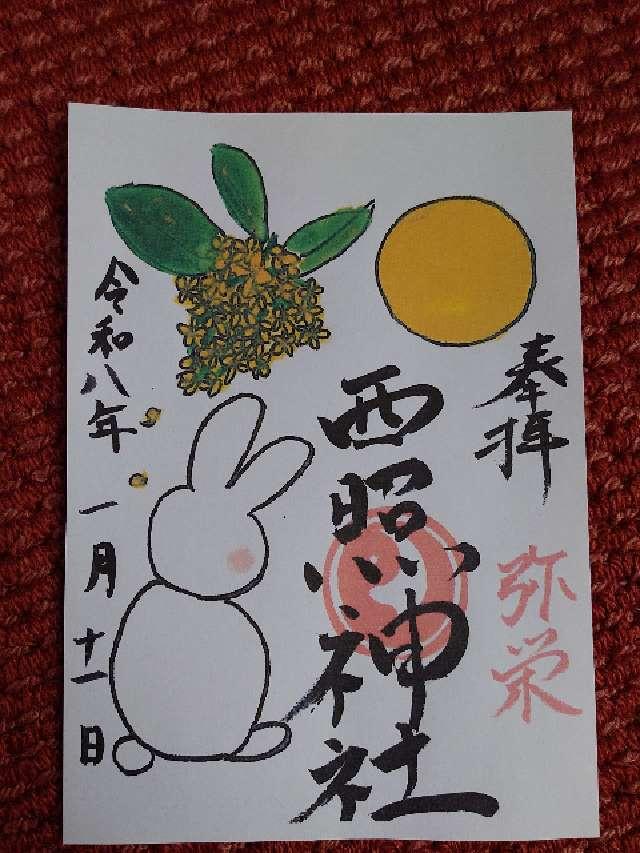 奉拝
弥栄
西照神社
令和八年
一月
十一日